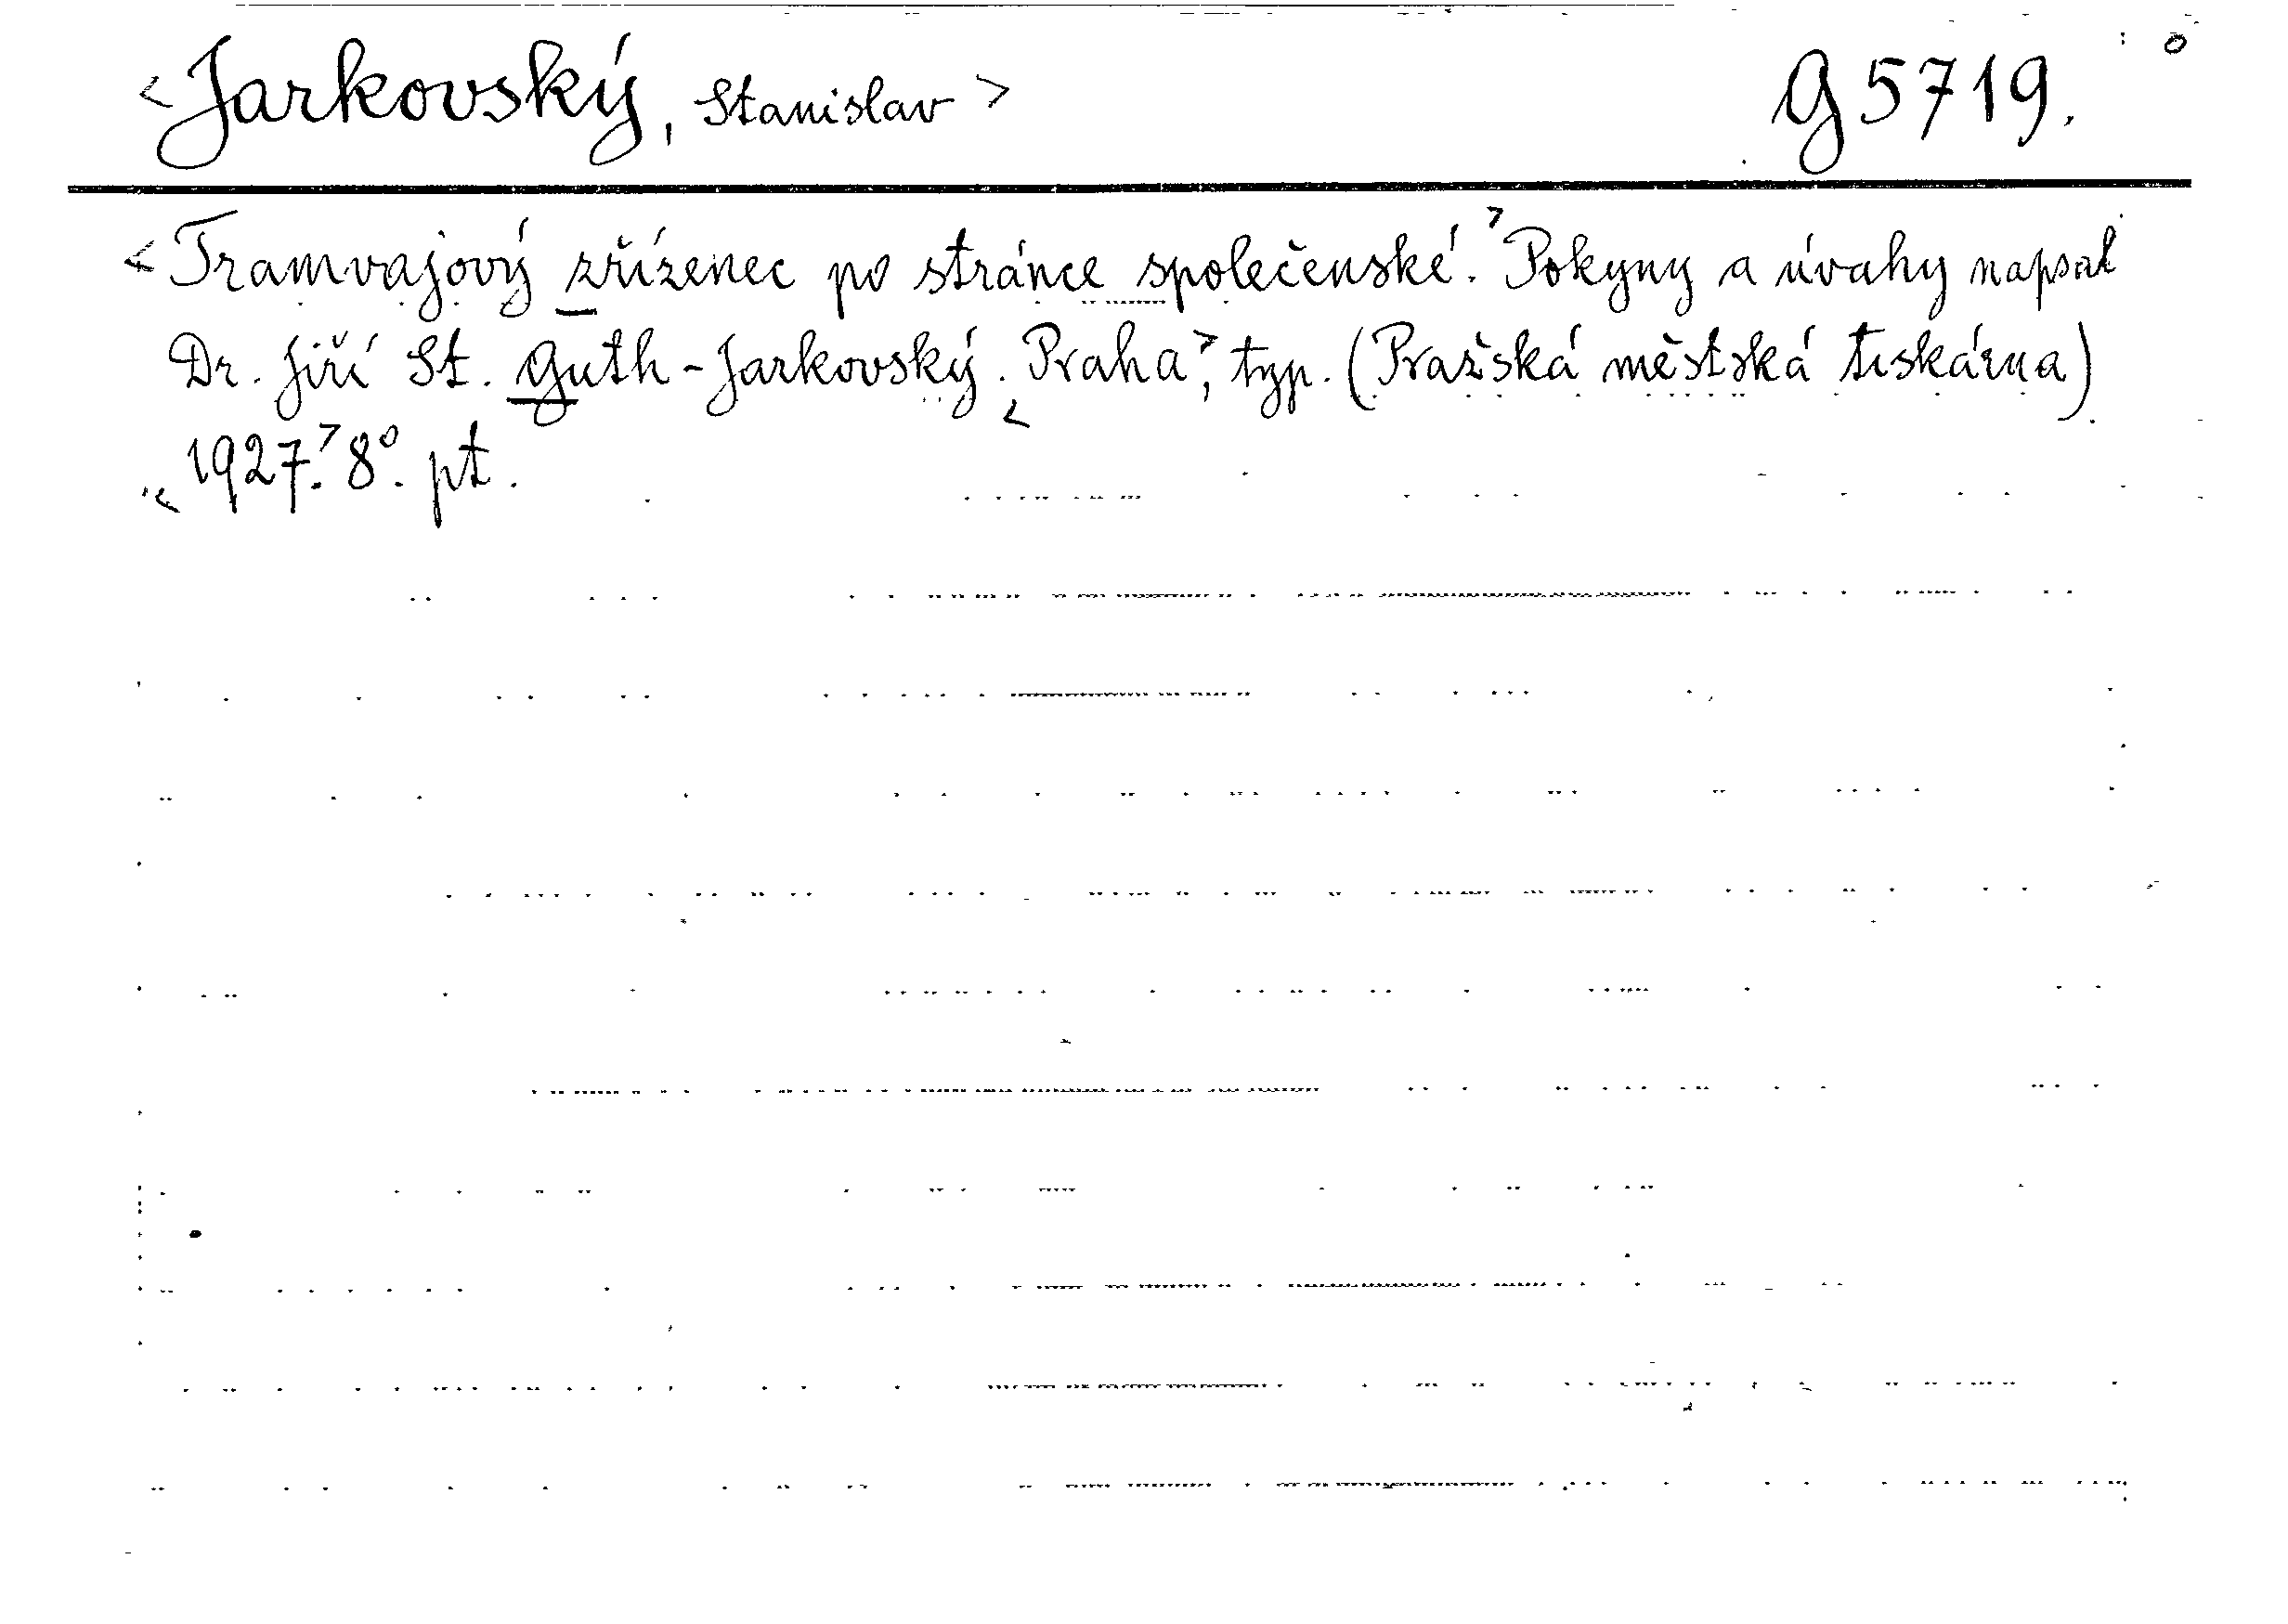 <Jarkovský, Stanislav> G 5719.
<Tramvajový zřízenec po stránce společenské.> Pokyny a úvahy napsal
Dr. Jiří St. Guth-Jarkovský. <Praha>, typ. (Pražská městská tiskárna)
<1927.> 8°. pt.